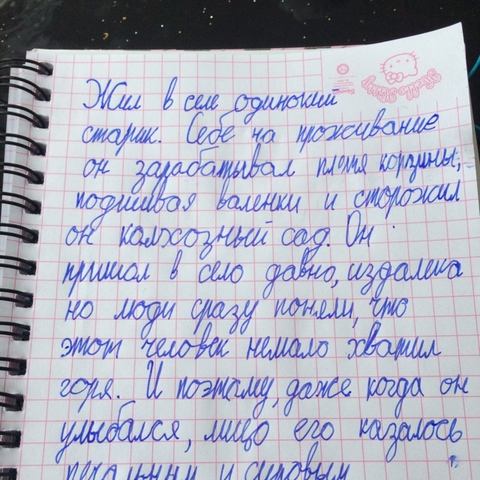 Жил в селе одинокий
старик. Себе на проживание
он зарабатывал плетя корзины,
подшивая валенки и сторожил
он калхозный сад. Он
пришол в село давно, издалека
но люди сразу поняли, что
этот человек немало хватил
горя. И поэтаму, даже когда он
улыбался, лицо его казалось
печальным и суровым